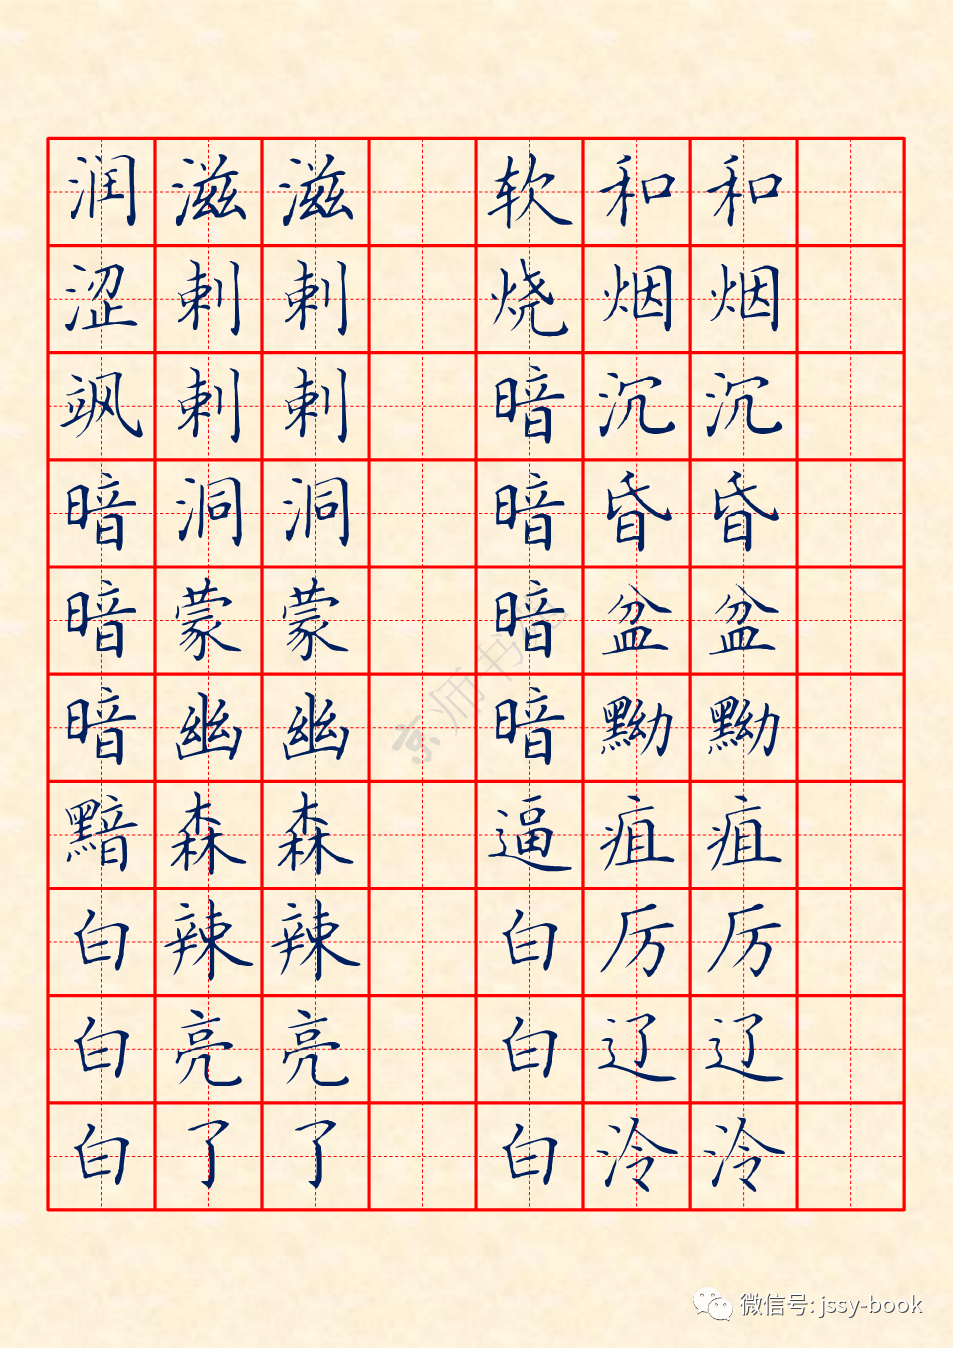 润滋滋 软和和
涩剌剌 烧烟烟
飒剌剌 暗沉沉
暗洞洞 暗昏昏
暗蒙蒙 暗盆盆
暗幽幽 暗黝黝
黯森森 逼疽疽
白辣辣 白厉厉
白亮亮 白辽辽
白了了 白泠泠
京师书
微信号: jssy-book